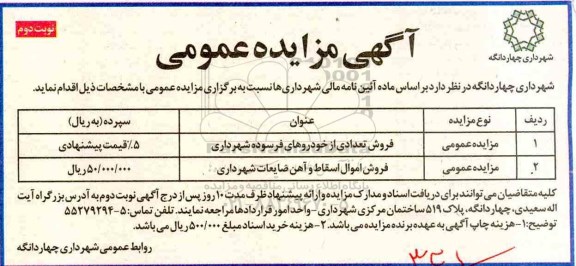 نوبت دوم
آگهی مزایده عمومی
شهرداری چهاردانگه
شهرداری چهاردانگه در نظر دارد بر اساس ماده آئین نامه مالی شهرداری ها نسبت به برگزاری مزایده عمومی با مشخصات ذیل اقدام نماید.
ردیف نوع مزایده عنوان سپرده (به ریال)
۱ مزایده عمومی فروش تعدادی از خودروهای فرسوده شهرداری ۵٪ قیمت پیشنهادی
۲ مزایده عمومی فروش اموال اسقاط و آهن ضایعات شهرداری ۵۰/۰۰۰/۰۰۰ ریال
کلیه متقاضیان می توانند برای دریافت اسناد و مدارک مزایده و ارائه پیشنهاد ظرف مدت ۱۰ روز پس از درج آگهی نوبت دوم به آدرس بزرگراه آیت
اله سعیدی، چهاردانگه، پلاک ۵۱۹ ساختمان مرکزی شهرداری - واحد امور قراردادها مراجعه نمایند. تلفن تماس: ۵-۵۵۲۷۹۲۹۴
توضیح: ۱- هزینه چاپ آگهی به عهده برنده مزایده می باشد. ۲- هزینه خرید اسناد مبلغ ۵۰۰/۰۰۰ ریال می باشد.
روابط عمومی شهرداری چهاردانگه